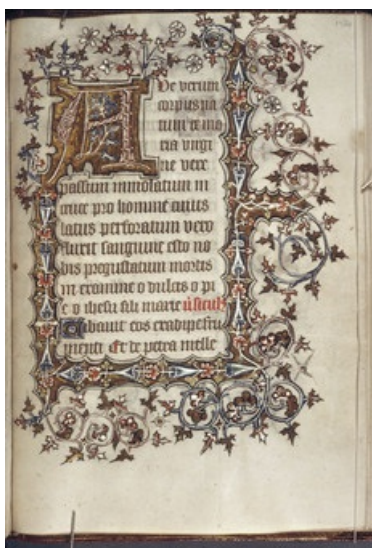 Ave verum
corpus na
tum de ma
ria virgi
ne vere
passum immolatum in
cruce pro homine cuius
latus perforatum vero
fluxit sanguine esto no
bis pregustatum mortis
in examine o dulcis o pi
e o ihesu fili marie
Cibavit eos ex adipe fru
menti Et de petra melle